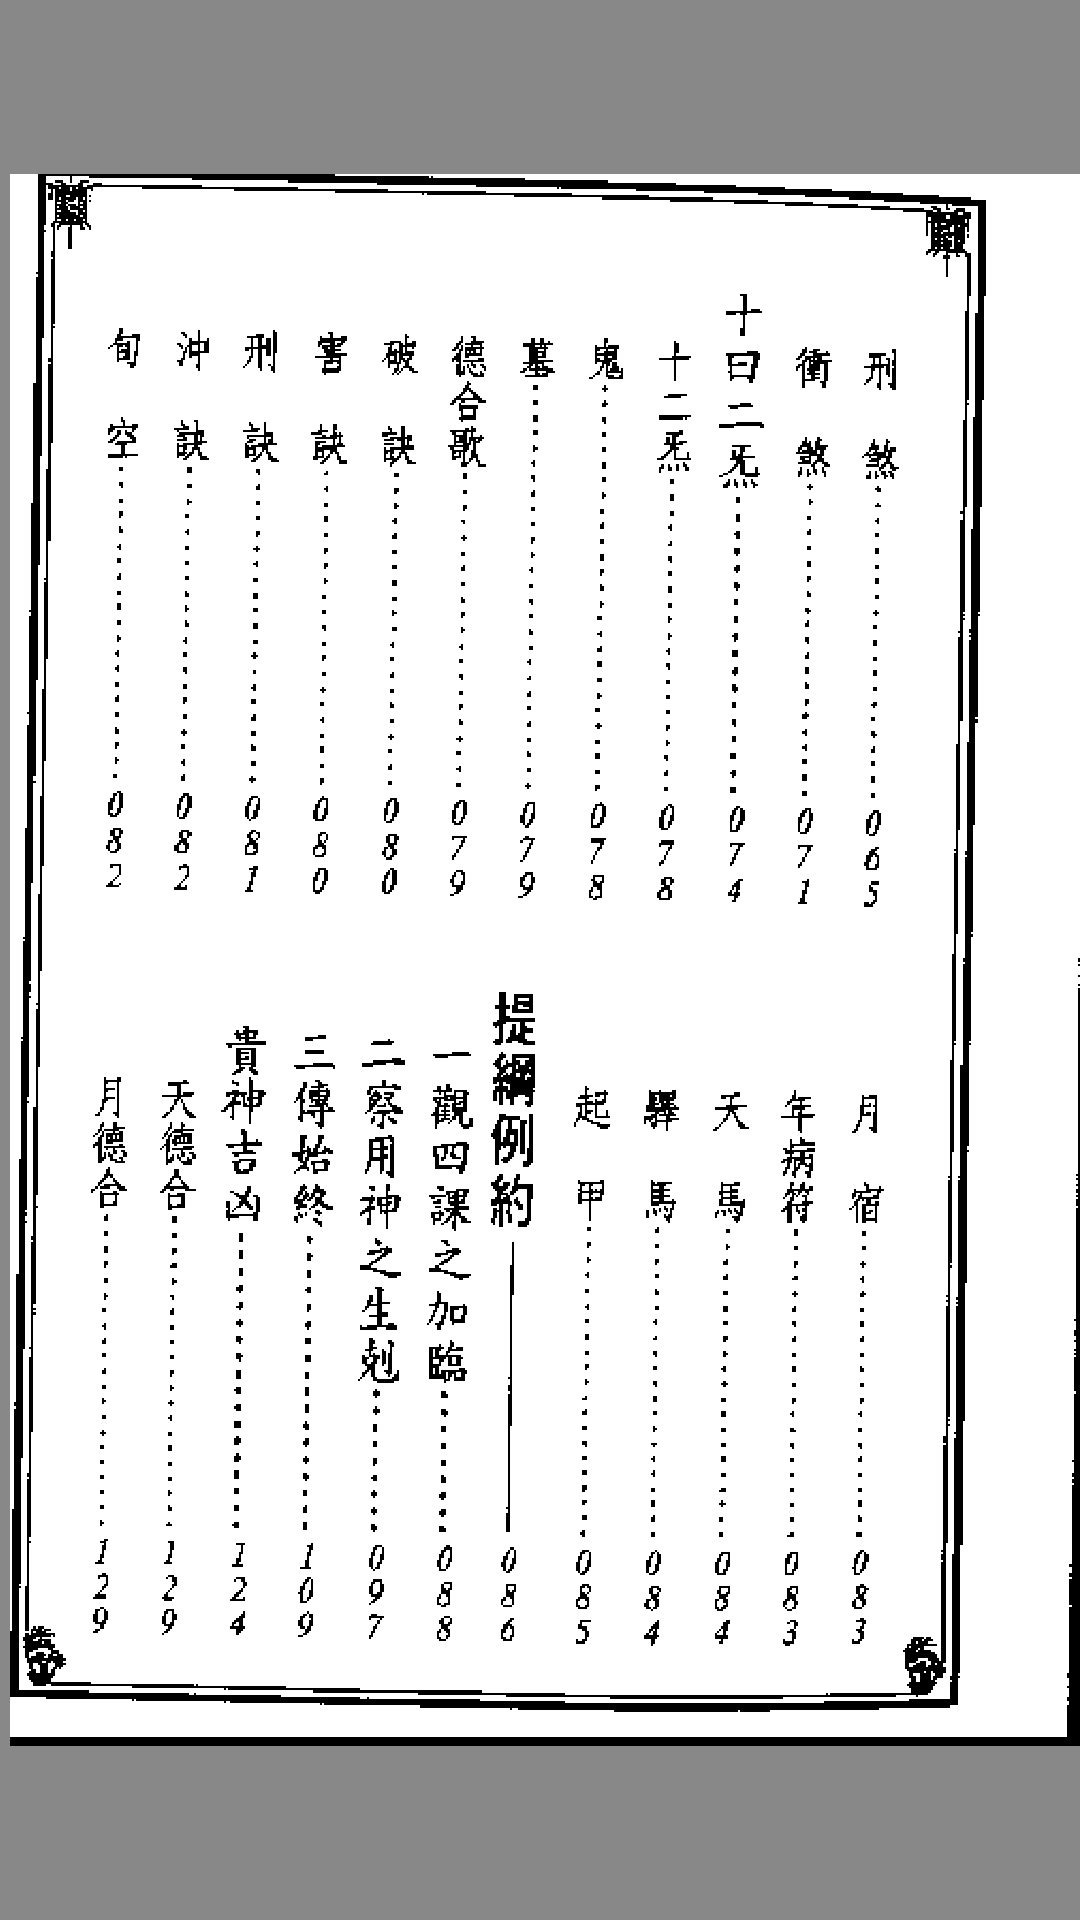 刑煞 065
衝煞 071
十曰二炁 074
十二炁 078
鬼 078
墓 079
德合歌 079
破訣 080
害訣 080
刑訣 081
沖訣 082
旬空 082
月宿 083
年病符 083
天馬 084
驛馬 084
起甲 085
提綱例約 086
一觀四課之加臨 088
二察用神之生剋 097
三傳始終 109
貴神吉凶 124
天德合 129
月德合 129